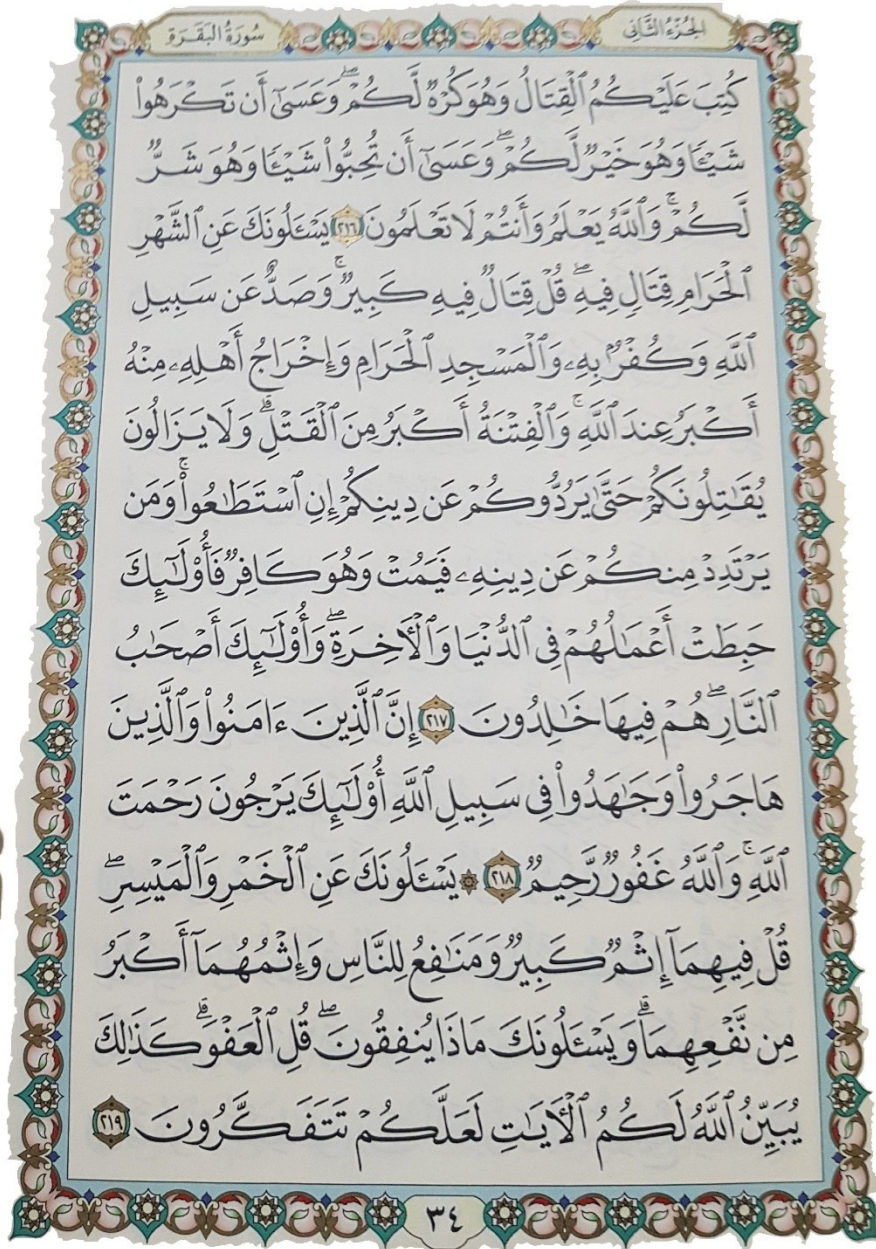 الجُزْءُ الثَّانِي
سُورَةُ البَقَرَةِ
كُتِبَ عَلَيْكُمُ ٱلْقِتَالُ وَهُوَ كُرْهٌ لَّكُمْ ۖ وَعَسَىٰٓ أَن تَكْرَهُوا۟
شَيْـًٔا وَهُوَ خَيْرٌ لَّكُمْ ۖ وَعَسَىٰٓ أَن تُحِبُّوا۟ شَيْـًٔا وَهُوَ شَرٌّ
لَّكُمْ ۗ وَٱللَّهُ يَعْلَمُ وَأَنتُمْ لَا تَعْلَمُونَ ٢١٦ يَسْـَٔلُونَكَ عَنِ ٱلشَّهْرِ
ٱلْحَرَامِ قِتَالٍ فِيهِ ۖ قُلْ قِتَالٌ فِيهِ كَبِيرٌ ۚ وَصَدٌّ عَن سَبِيلِ
ٱللَّهِ وَكُفْرٌۢ بِهِۦ وَٱلْمَسْجِدِ ٱلْحَرَامِ وَإِخْرَاجُ أَهْلِهِۦ مِنْهُ
أَكْبَرُ عِندَ ٱللَّهِ ۚ وَٱلْفِتْنَةُ أَكْبَرُ مِنَ ٱلْقَتْلِ ۗ وَلَا يَزَالُونَ
يُقَـٰتِلُونَكُمْ حَتَّىٰ يَرُدُّوكُمْ عَن دِينِكُمْ إِنِ ٱسْتَطَـٰعُوا۟ ۚ وَمَن
يَرْتَدِدْ مِنكُمْ عَن دِينِهِۦ فَيَمُتْ وَهُوَ كَافِرٌ فَأُو۟لَـٰٓئِكَ
حَبِطَتْ أَعْمَـٰلُهُمْ فِى ٱلدُّنْيَا وَٱلْـَٔاخِرَةِ ۖ وَأُو۟لَـٰٓئِكَ أَصْحَـٰبُ
ٱلنَّارِ ۖ هُمْ فِيهَا خَـٰلِدُونَ ٢١٧ إِنَّ ٱلَّذِينَ ءَامَنُوا۟ وَٱلَّذِينَ
هَاجَرُوا۟ وَجَـٰهَدُوا۟ فِى سَبِيلِ ٱللَّهِ أُو۟لَـٰٓئِكَ يَرْجُونَ رَحْمَتَ
ٱللَّهِ ۚ وَٱللَّهُ غَفُورٌ رَّحِيمٌ ٢١٨ ۞ يَسْـَٔلُونَكَ عَنِ ٱلْخَمْرِ وَٱلْمَيْسِرِ ۖ
قُلْ فِيهِمَآ إِثْمٌ كَبِيرٌ وَمَنَـٰفِعُ لِلنَّاسِ وَإِثْمُهُمَآ أَكْبَرُ
مِن نَّفْعِهِمَا ۗ وَيَسْـَٔلُونَكَ مَاذَا يُنفِقُونَ ۖ قُلِ ٱلْعَفْوَ ۗ كَذَٰلِكَ
يُبَيِّنُ ٱللَّهُ لَكُمُ ٱلْـَٔايَـٰتِ لَعَلَّكُمْ تَتَفَكَّرُونَ ٢١٩
٣٤